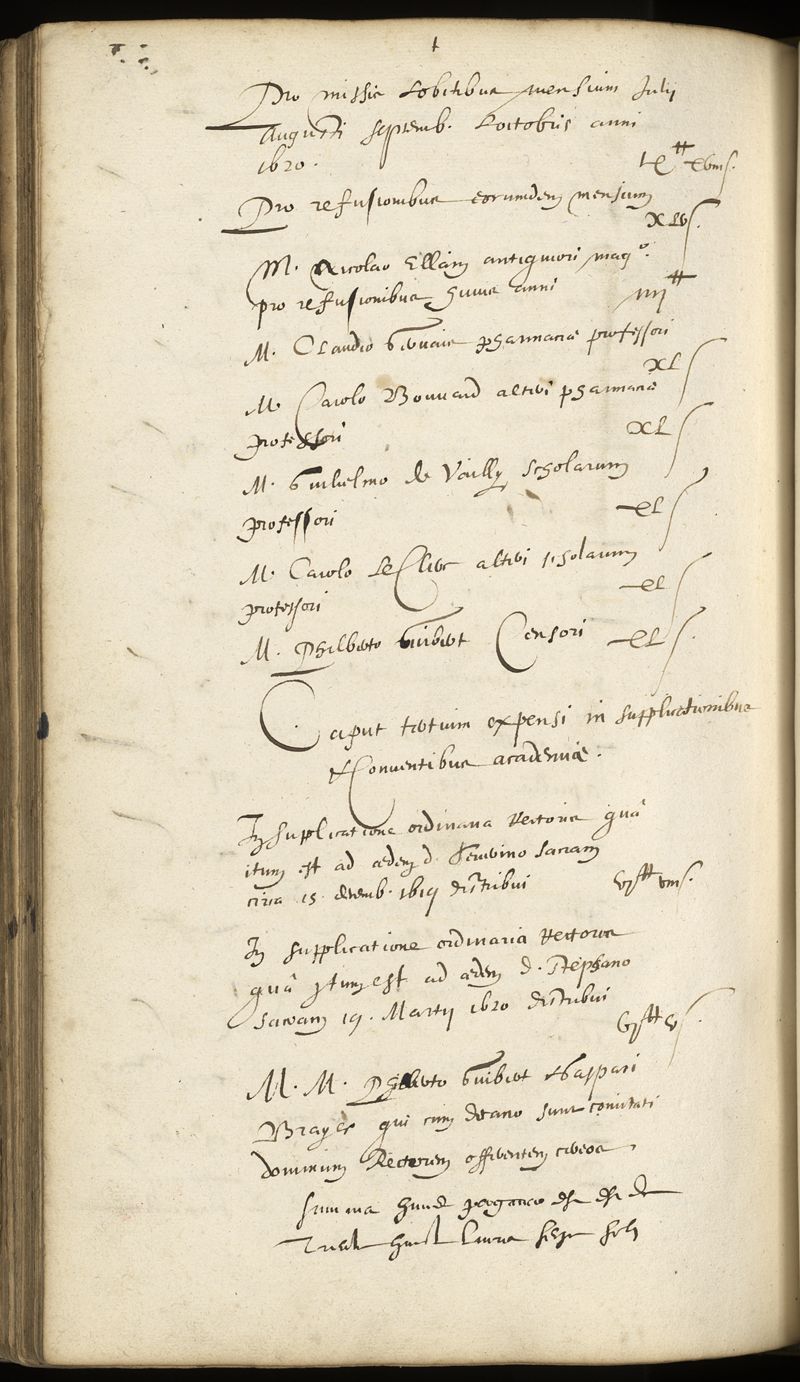 Pro missis & obitibus mensium Julii
Augusti septemb. & octobris anni
1620. lx ₶ xviii s.
Pro refusionibus eorumdem mensium
xlv s.
M. Nicolao Ellain antiquiori mag°.
pro refusionibus huius anni iiii ₶
M. Claudio Gervais pharmaciæ professori
xl s
M. Carolo Bouvard alteri pharmaciæ
professori xl s
M. Guilielmo de Vailly scholarum
professori xl s
M. Carolo Le Clerc alteri scholarum
professori xl s
M. Philberto Guibert Censori xl s.
Caput tertium expensi in supplicationibus
& Conventibus academiæ.
In supplicatione ordinaria Rectoris quâ
itum est ad ædem d. sacram
circa 15 decemb. 1619 distribui vi ₶ viii s.
In supplicatione ordinaria Rectoris
quâ itum est ad ædem d. Stephano
sacram 19. Martii 1620 distribui
vi ₶ v s.
M. M. Philberto Guibert & Gaspari
Brayer qui cum decano sunt comitati
dominum Rectorem offerentem cereos
Summa